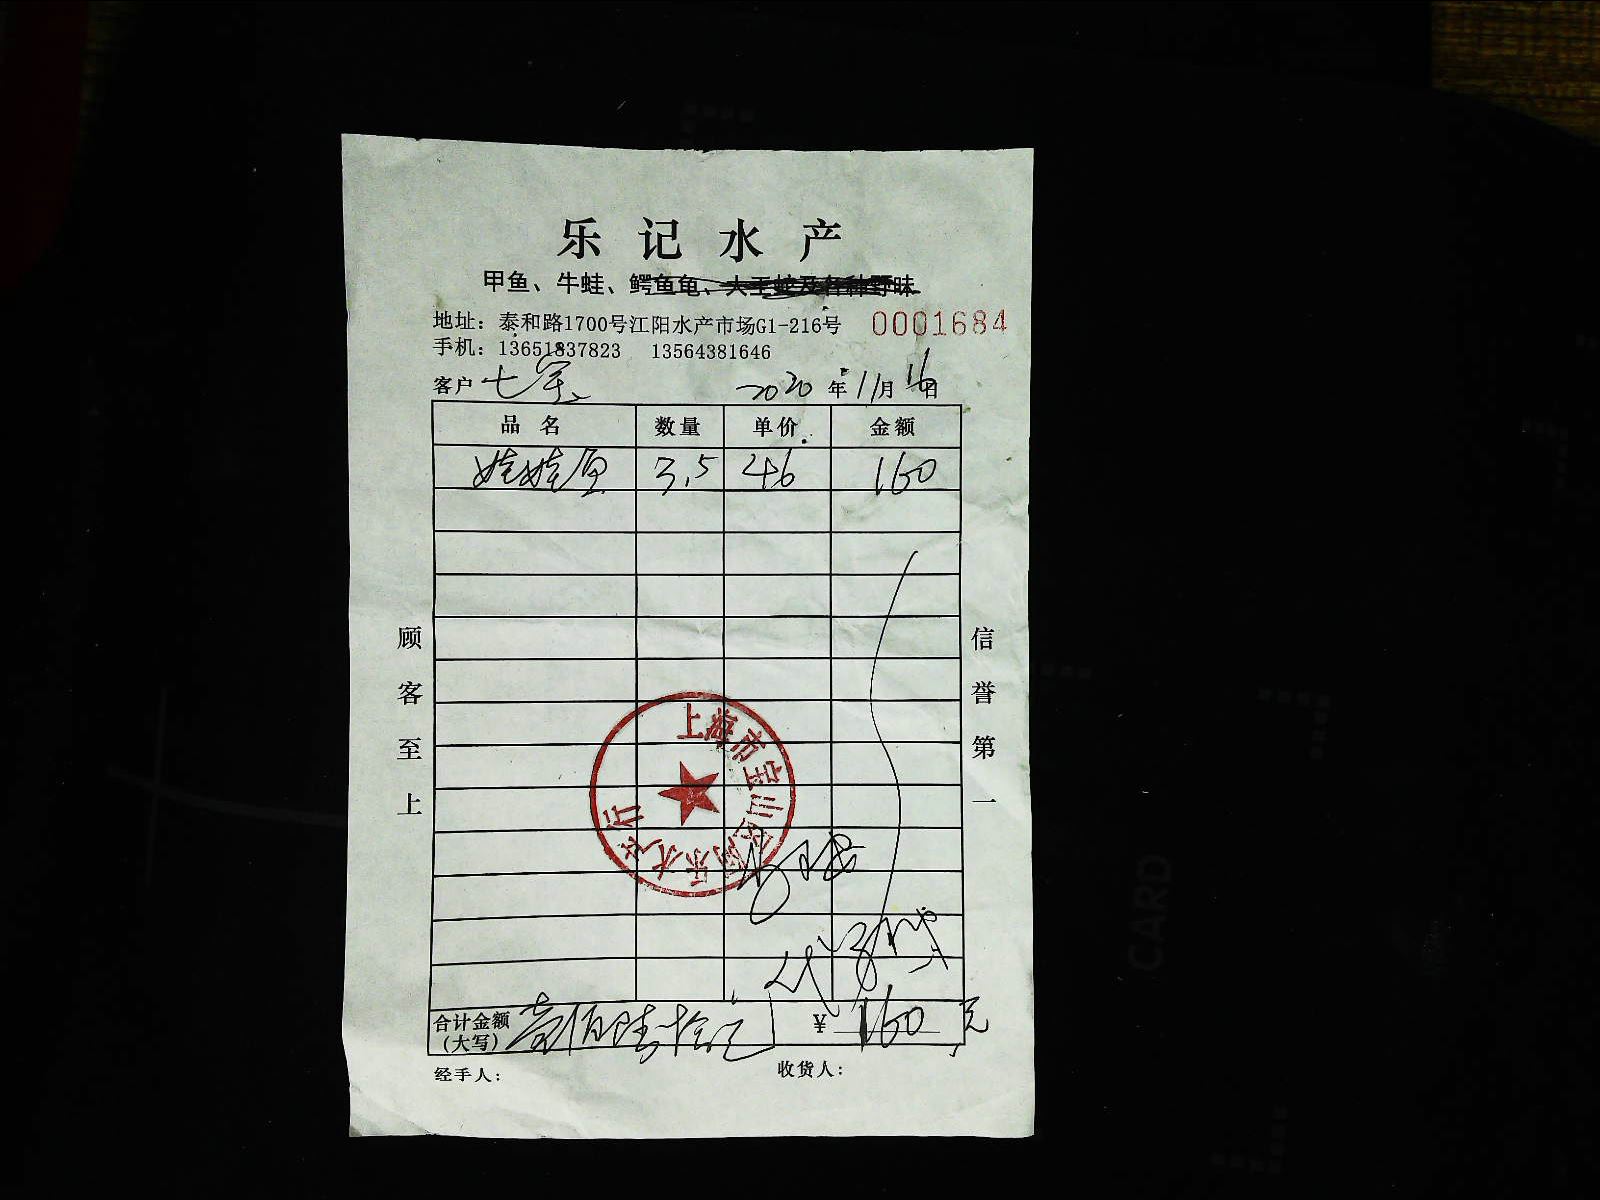 乐记水产
甲鱼、牛蛙、鳄鱼龟、大王蛇及各种野味
地址：泰和路1700号江阳水产市场G1-216号 0001684
手机：13651837823 13564381646
客户 七 2020年11月16日
品名 数量 单价 金额
娃娃鱼 3.5 46 160
顾客至上
信誉第一
上海市宝山区 乐水产行
合计金额 壹佰陆拾元 ¥160元
（大写）
经手人： 收货人：